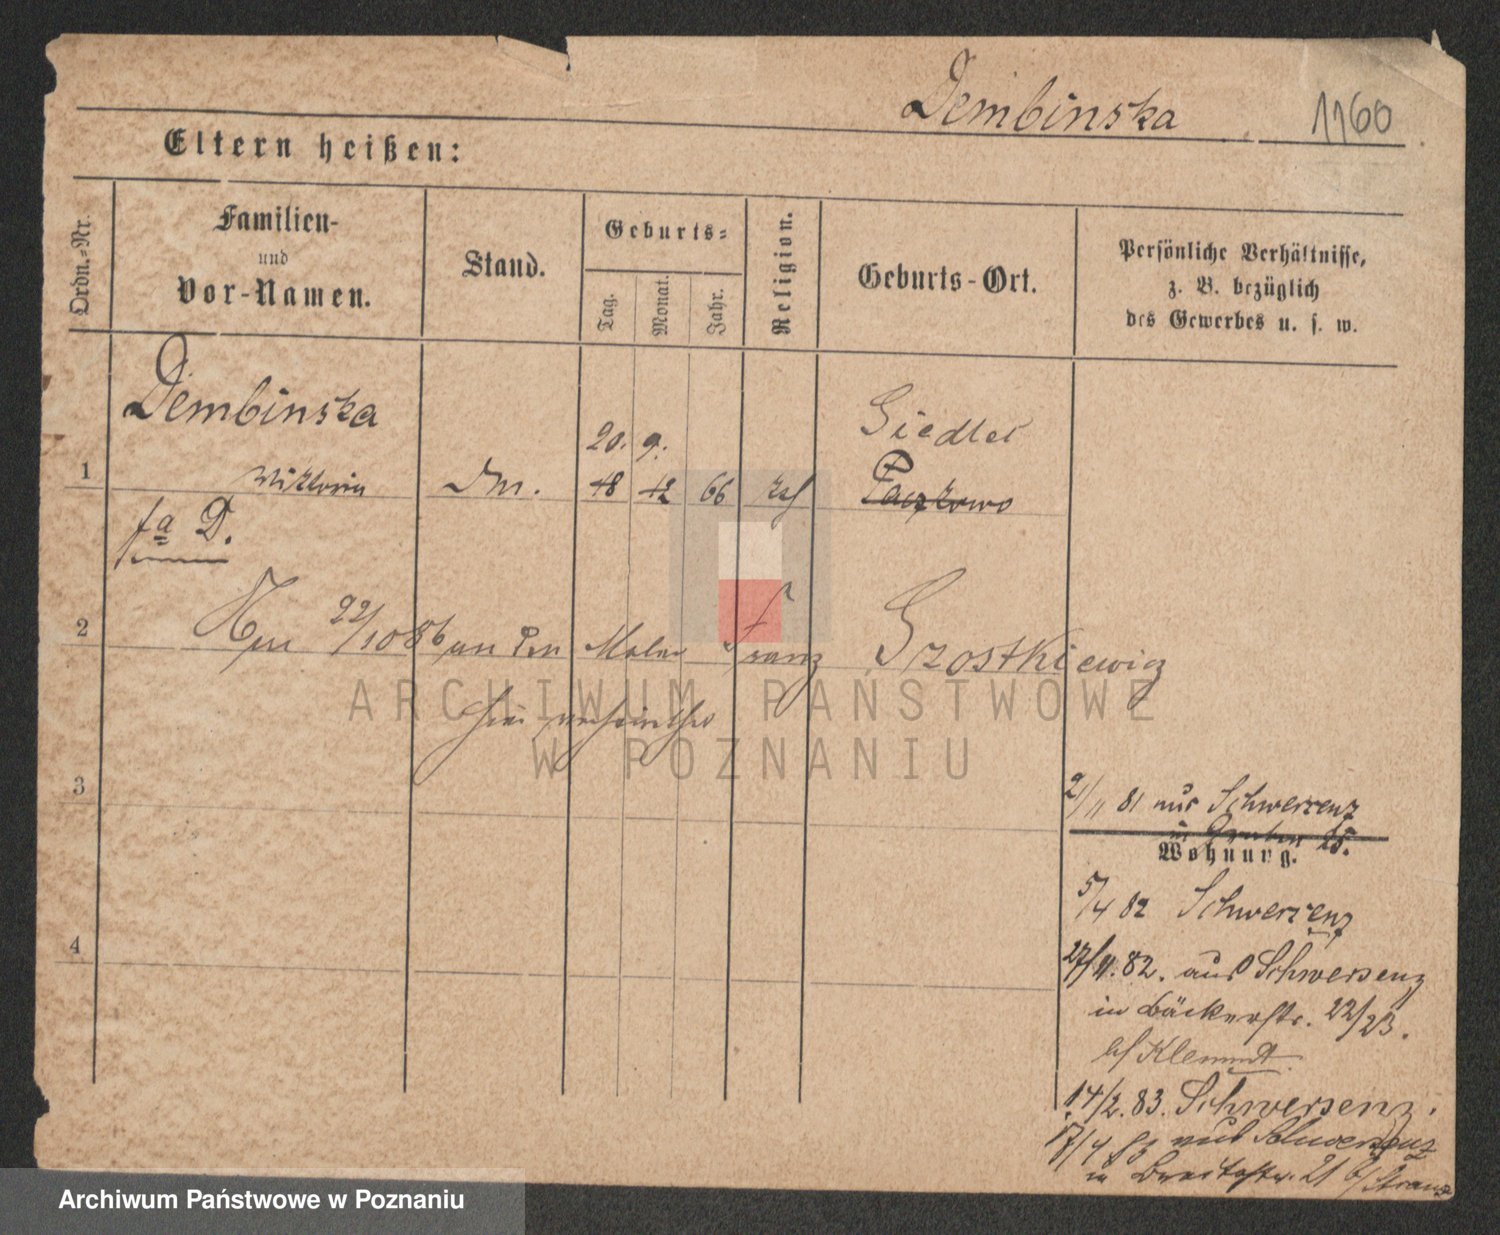 Dembinska 1160
Eltern heißen:
Ordn.-Nr.
Familien-
und
Vor-Namen.
Stand.
Geburts-
Tag.
Monat.
Jahr.
Religion.
Geburts-Ort.
Persönliche Verhältnisse,
z. B. bezüglich
des Gewerbes u. s. w.
Dembinska
20. 9. Siedlec
1 Wiktoria 18 12 66 kf Paczkowo
fa D.
2 22/10 86 an den Maler Franz Szostkiewicz
hier
3
2/11 81 aus Schwersenz
in 25.
Wohnung.
5/4 82 Schwersenz
4
27/11. 82. aus Schwersenz
in Bäckerstr. 22/23.
b/ Klemmt
14/2. 83. Schwersenz.
17/4 83 aus Schwersenz
in Breitestr. 21 b/
ARCHIWUM PAŃSTWOWE
W POZNANIU
Archiwum Państwowe w Poznaniu